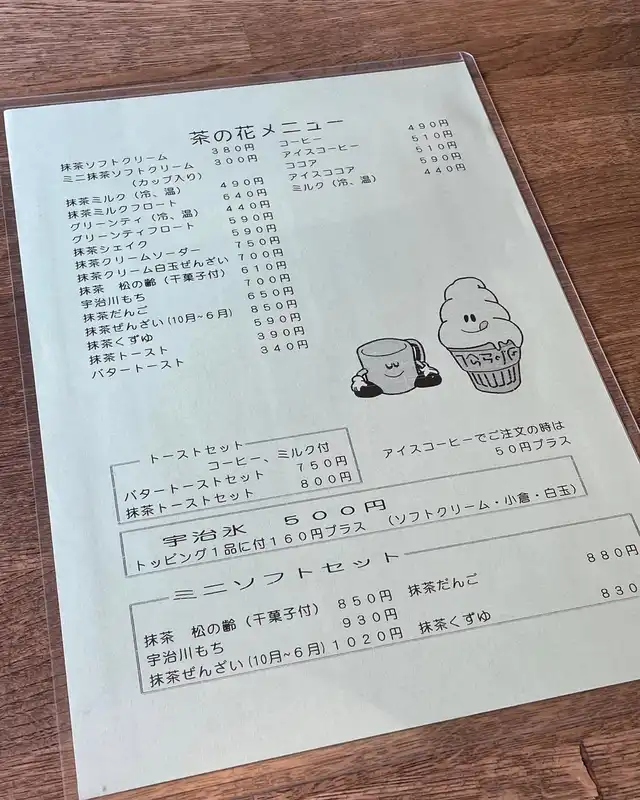 茶の花メニュー
抹茶ソフトクリーム　380円
ミニ抹茶ソフトクリーム　300円
(カップ入り)
抹茶ミルク（冷、温）　490円
抹茶ミルクフロート　640円
グリーンティ（冷、温）　440円
グリーンティフロート　590円
抹茶シェイク　590円
抹茶クリームソーダー　750円
抹茶クリーム白玉ぜんざい　700円
抹茶　松の齢（干菓子付）　610円
宇治川もち　700円
抹茶だんご　650円
抹茶ぜんざい(10月~6月)　850円
抹茶くずゆ　590円
抹茶トースト　390円
バタートースト　340円
コーヒー　490円
アイスコーヒー　510円
ココア　510円
アイスココア　590円
ミルク（冷、温）　440円
トーストセット
コーヒー、ミルク付
バタートーストセット　750円
抹茶トーストセット　800円
アイスコーヒーでご注文の時は
50円プラス
宇治氷　500円
トッピング1品に付160円プラス　（ソフトクリーム・小倉・白玉）
ミニソフトセット
抹茶　松の齢（干菓子付）　850円　抹茶だんご　880円
宇治川もち　930円
抹茶ぜんざい(10月~6月)　1020円　抹茶くずゆ　830